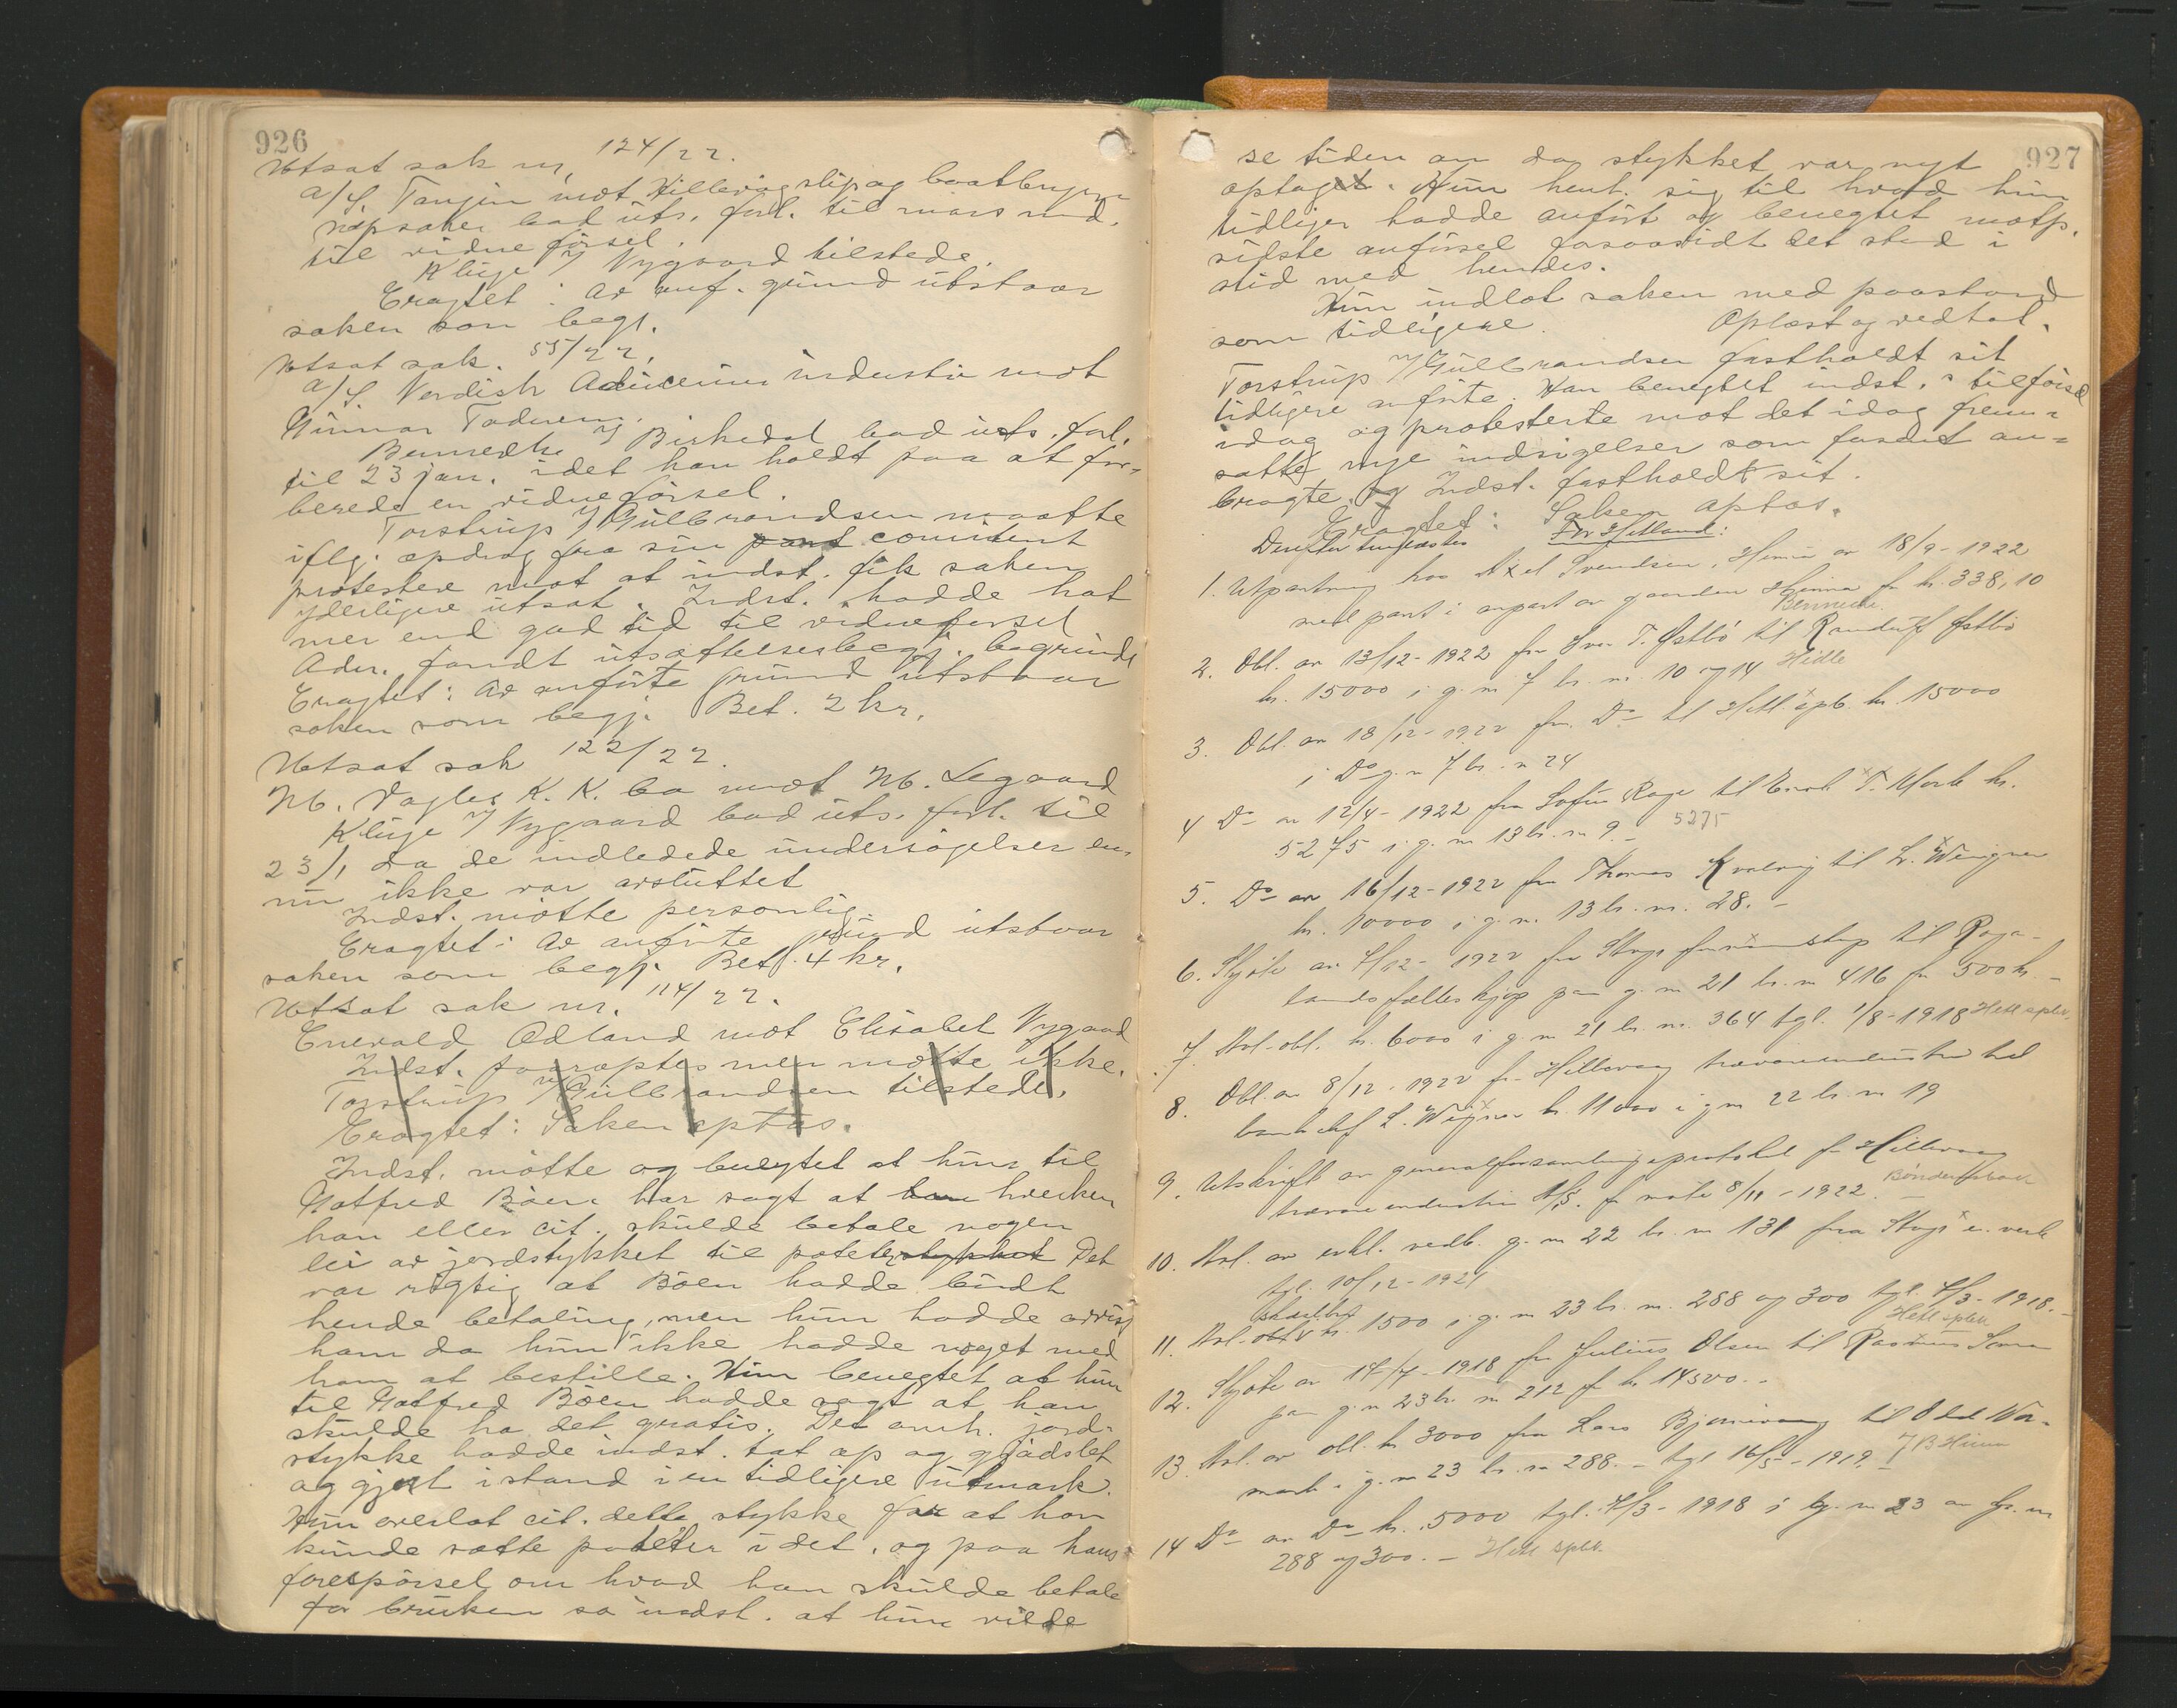 926
Utsat sak nr. 124/22.
A/S. Tangen mot Hillevåg slip og baatbyggeri
bad uts. forl. til mars md.
til vidneførsel.
Kluge v/ Nygaard tilstede.
Eragtet: Av anf. grund utstaar
saken som begj.
Utsat sak. 55/22.
A/S Nordisk industri mot
Gunnar
v/ Birkedal bad uts. forl.
til 23 jan. idet han holdt paa at for-
berede en vidneførsel.
Torstrup v/ Gulbrandsen maatte
iflg. opdrag fra sin part comittent
protestere mot at indst. fik saken
yderligere utsat. Indst. hadde hat
mer end god tid til vidneførsel
Adm. fandt utsættelsesbegj. begrundet
Eragtet: Av anførte grund utstaar
saken som begj. Bet. 2 kr.
Utsat sak 122/22.
M. Vagles K. K. bo mot M. Legaard
Kluge v/ Nygaard bad uts. forl. til
23/1 da de indledede undersøgelser en-
nu ikke var avsluttet
Indst. møtte personlig.
Eragtet: Av anførte grund utstaar
saken som begj. Bet. 4 kr.
Utsat sak nr. 114/22.
Enevald Ødland mot Elisabet Nygaard
Indst. paaroptes men møtte ikke.
Torstrup v/ Gulbrandsen tilstede.
Eragtet: Saken optas.
Indst. møtte og benegtet at hun til
Gotfred Bøen har sagt at han hverken
han eller cit. skulde betale nogen
leie av jordstykket til potetstykket Det
var rigtig at Bøen hadde budt
hende betaling, men hun hadde avvist
ham da hun ikke hadde noget med
ham at bestille. Hun benegtet at hun
til Gotfred Bøen hadde sagt at han
skulde ha det gratis. Det omh. jord-
stykke hadde indst. tat op og gjødslet
og gjort istand i en tidligere utmark.
Hun overlot cit. dette stykke for at han
kunde sætte poteter i det, og paa hans
forespørsel om hvad han skulde betale
for bruken sa indst. at hun vilde
927
se tiden an da stykket var nyt
optaget. Hun henh. sig til hvad hun
tidliger hadde anført og benegtet motp.
sidste anførsel forsaavidt det stod i
strid med hendes.
Hun indlot saken med paastand
som tidligere. Oplæst og vedtat.
Torstrup v/ Gulbrandsen fastholdt sit
tidligere anførte. Han benegtet indst.s tilførsel
idag og protesterte mot det idag frem-
satte nye indsigelser som forsent an-
bragte. og Indst. fastholdt sit.
Eragtet: Saken optas.
Derefter tinglæstes For Hetland:
1. Utpantning hos Axel Svendsen, Hinna av 18/9-1922
med pant i anpart av gaarden Hinna for kr. 338,10
2. Obl. av 13/12-1922 fra T. Østbø til Randulf Østbø
kr. 15000 i g. nr 7 br. nr. 10 og 14 Hidle
3. Obl. av 18/12-1922 fra Do til Hetl spb. kr. 15000
i Do g. nr 7 br. nr 24
4 Do av 12/4-1922 fra Rage til T. kr.
5275 i g. nr 13 br. nr 9.- 5275
5. Do av 16/12-1922 fra Thomas Kvalevåg til L. Wigner
kr. 10000 i g. nr. 13 br. nr. 28.-
6. Skjøte av 7/12-1922 fra til Roga-
lands felleskjøp paa g. nr 21 br. nr 416 for 500 kr.-
7. Avl. obl. kr. 6000 i g nr 21 br. nr. 364 tgl. 1/8-1918 Hetl spbk.
8. Obl. av 8/12-1922 fra Hillevaag trævareindustri til
L. Wigner kr. 11000 i g nr 22 br. nr 19
9. Utskrift av generalforsamlingsprotokol for Hillevaag
trævareindustri A/S. for møte 8/11-1922.- Bøndernes bank
10. Avl. av erkl. vedk. g. nr 22 br. nr 131 fra
tgl. 10/12-1921
11. Avl. obl. skadesbr kr. 1500 i g. nr 23 br. nr. 288 og 300 tgl. 7/3-1918.-
Hetl spbk
12. Skjøte av 17/7-1918 fra Julius Olsen til Rasmus
paa g. nr 23 br. nr 212 for kr 14500.-
13. Avl. av obl. kr 3000 fra Lars til
mark i g. nr 23 br. nr 288.- tgl 16/5-1919.
14 Do av Do kr. 5000 tgl. 7/3-1918 i g. nr 23 av br. nr
288 og 300.- Hetl spbk